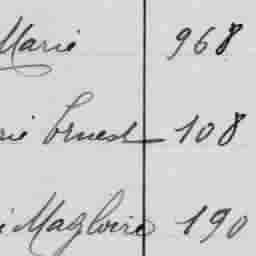 Marie 968
rie Ernest 108
i Magloire 190